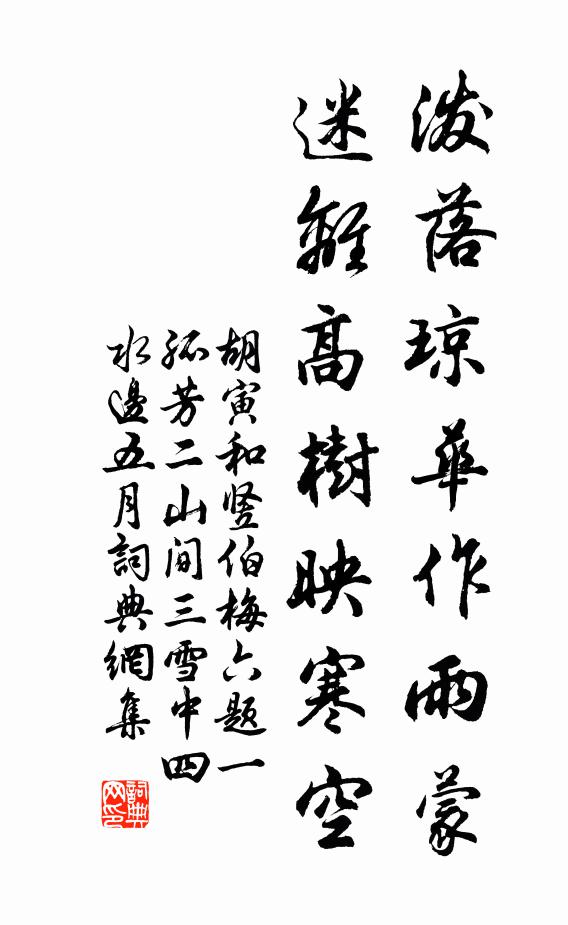 泼落琼華作雨蒙
迷離高樹映寒空
胡寅和竖伯梅六题一
孤芳二山间三雪中四
水邊五月詞典網集
詞典网印